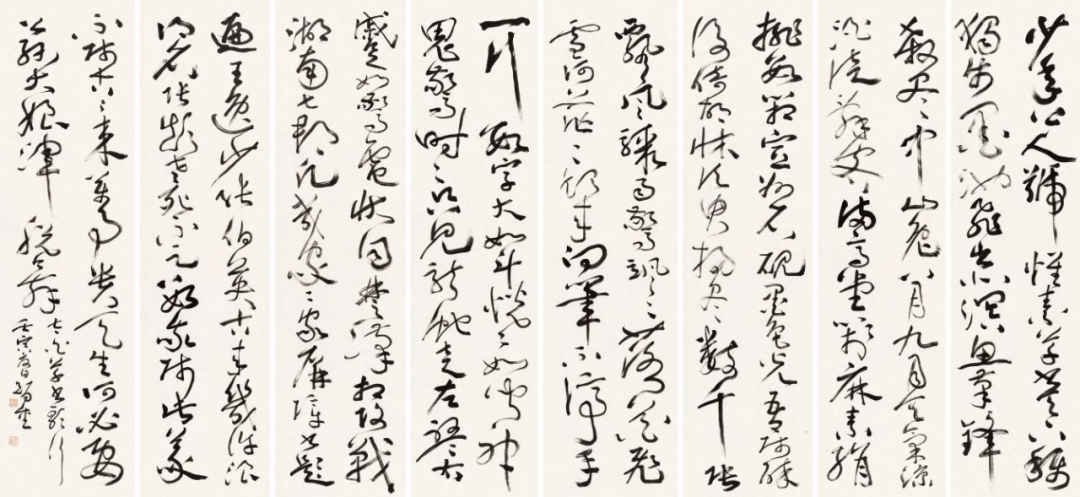 少年上人號懷素草書天下稱
獨步墨池飛出北溟魚筆鋒
殺盡中山兔八月九月天氣涼
酒徒辭客滿高堂箋麻素絹
排數箱宣州石硯墨色光吾師醉
後倚繩床須臾掃盡數千張
飄風驟雨驚颯颯落花飛
雪何茫茫起來向筆不停手
一行數字大如斗恍恍如聞神
鬼驚時時只見龍蛇走左盤右
蹙如驚電狀同楚漢相攻戰
湖南七郡凡幾家家家屏障書題
遍王逸少張伯英古來幾許浪
得名張顛老死不足數我師此義
不師古古來萬事貴天生何必要
公孫大娘渾脫舞
太白草書歌行
壬寅春